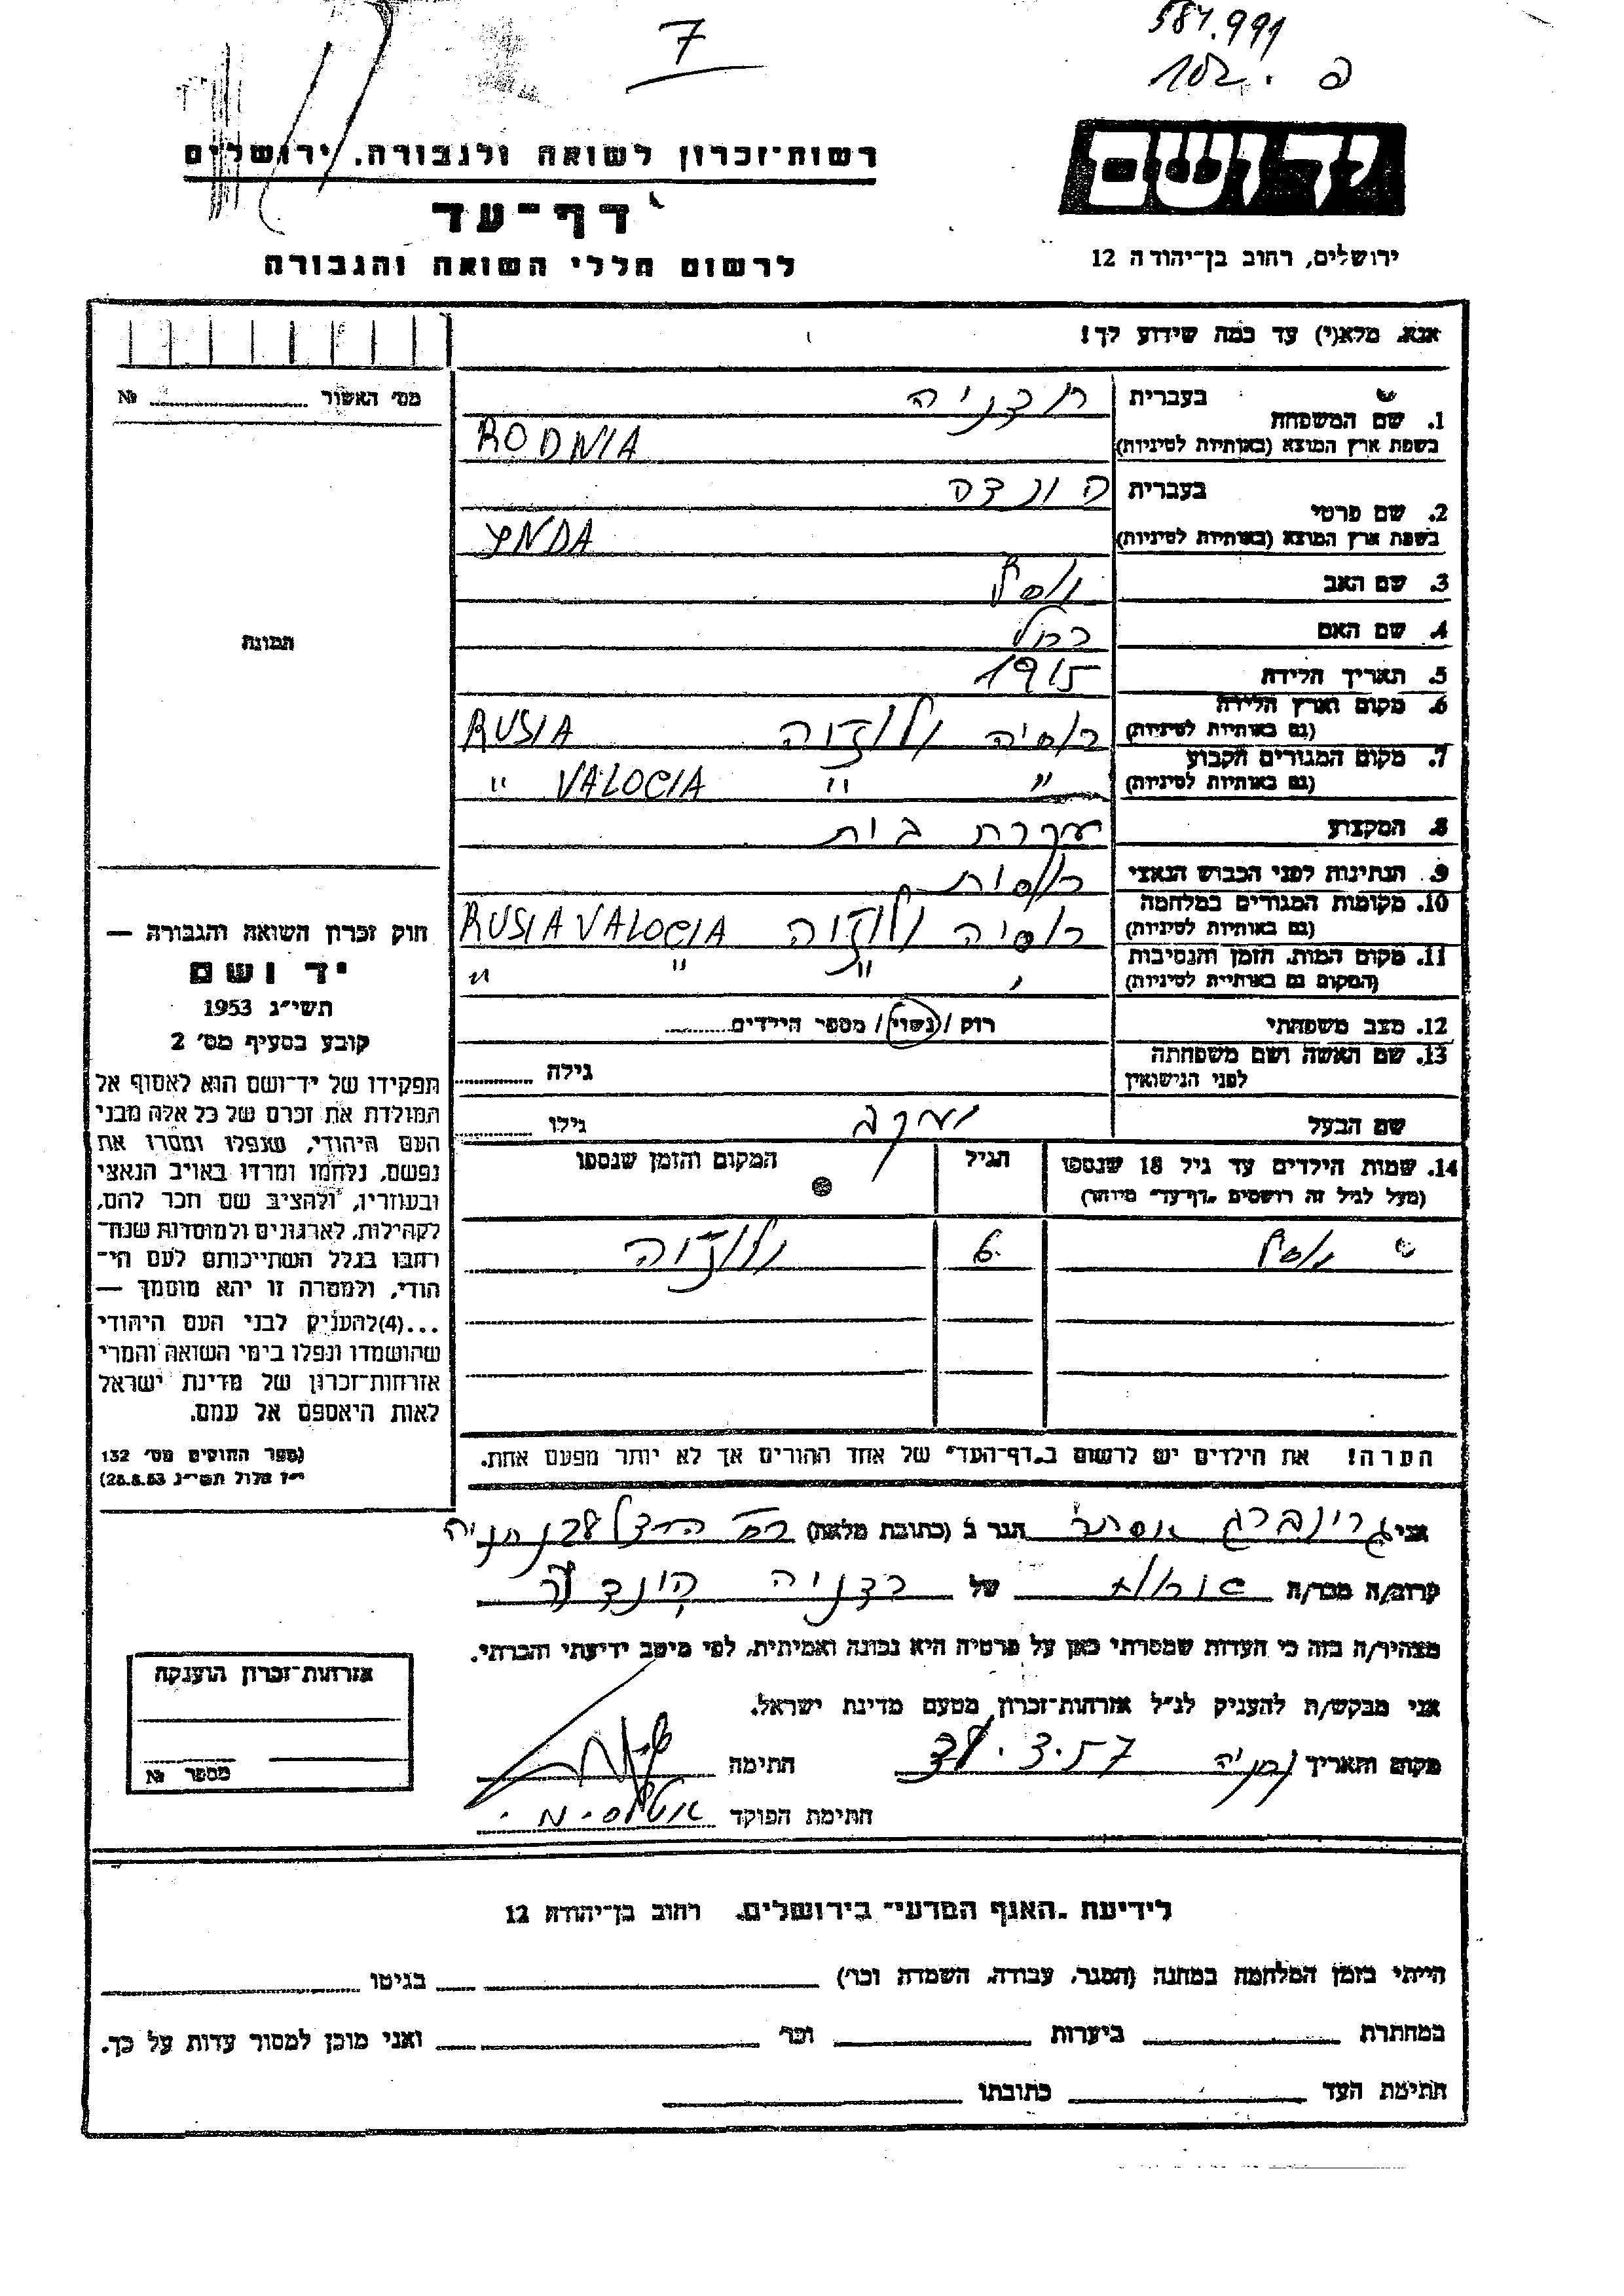 7
587.999
102. פ
יד ושם
ירושלים, רחוב בן־יהודה 12
רשות־זכרון לשואה ולגבורה, ירושלים
דף־עד
לרשום חללי השואה והגבורה
אנא, מלא(י) עד כמה שידוע לך!
מס׳ האשור №
1. שם המשפחה בעברית רודניה
בשפת ארץ המוצא (באותיות לטיניות) RODNIA
2. שם פרטי בעברית הונדה
בשפת ארץ המוצא (באותיות לטיניות) YNDA
3. שם האב יוסף
4. שם האם רחל
5. תאריך הלידה 1915
6. מקום וארץ הלידה (גם באותיות לטיניות) רוסיה ולוזיה RUSIA
7. מקום המגורים הקבוע (גם באותיות לטיניות) " " VALOCIA "
8. המקצוע עקרת בית
9. הנתינות לפני הכבוש הנאצי רוסית
10. מקומות המגורים במלחמה (גם באותיות לטיניות) רוסיה ולוזיה RUSIA VALOCIA
11. מקום המות, הזמן והנסיבות (המקום גם באותיות לטיניות) " " " "
12. מצב משפחתי רוק / נשוי / מספר הילדים
13. שם האשה ושם משפחתה לפני הנישואין גילה
שם הבעל יעקב גילו
14. שמות הילדים עד גיל 18 שנספו הגיל המקום והזמן שנספו
(מעל לגיל זה רושמים "דף־עד" מיוחד)
יוסף 6 ולוזיה
הערה! את הילדים יש לרשום ב"דף־העד" של אחד ההורים אך לא יותר מפעם אחת.
תמונה
חוק זכרון השואה והגבורה —
יד ושם
תשי״ג 1953
קובע בסעיף מס׳ 2
תפקידו של יד־ושם הוא לאסוף אל
המולדת את זכרם של כל אלה מבני
העם היהודי, שנפלו ומסרו את
נפשם, נלחמו ומרדו באויב הנאצי
ובעוזריו, ולהציב שם וזכר להם,
לקהילות, לארגונים ולמוסדות שנח־
רבו בגלל השתייכותם לעם הי־
הודי, ולמטרה זו יהא מוסמך —
...(4) להעניק לבני העם היהודי
שהושמדו ונפלו בימי השואה והמרי
אזרחות־זכרון של מדינת ישראל
לאות היאספם אל עמם.
(ספר החוקים מס׳ 132
י״ז אלול תשי״ג 28.8.53)
אני גרינברג אסתר הגר ב (כתובת מלאה) רח הרצל נתניה
קרוב/ה מכר/ה של רדניה הינדה
מצהיר/ה בזה כי העדות שמסרתי כאן על פרטיה היא נכונה ואמיתית, לפי מיטב ידיעתי והכרתי.
אני מבקש/ת להעניק לנ״ל אזרחות־זכרון מטעם מדינת ישראל.
מקום ותאריך נתניה 3.57 חתימה
חתימת הפוקד
אזרחות־זכרון הוענקה
מספר №
לידיעת "האגף המדעי" בירושלים, רחוב בן־יהודה 12
הייתי בזמן המלחמה במחנה (הסגר, עבודה, השמדה וכו׳) בגיטו
במחתרת ביערות וכו׳ ואני מוכן למסור עדות על כך.
חתימת העד כתובתו